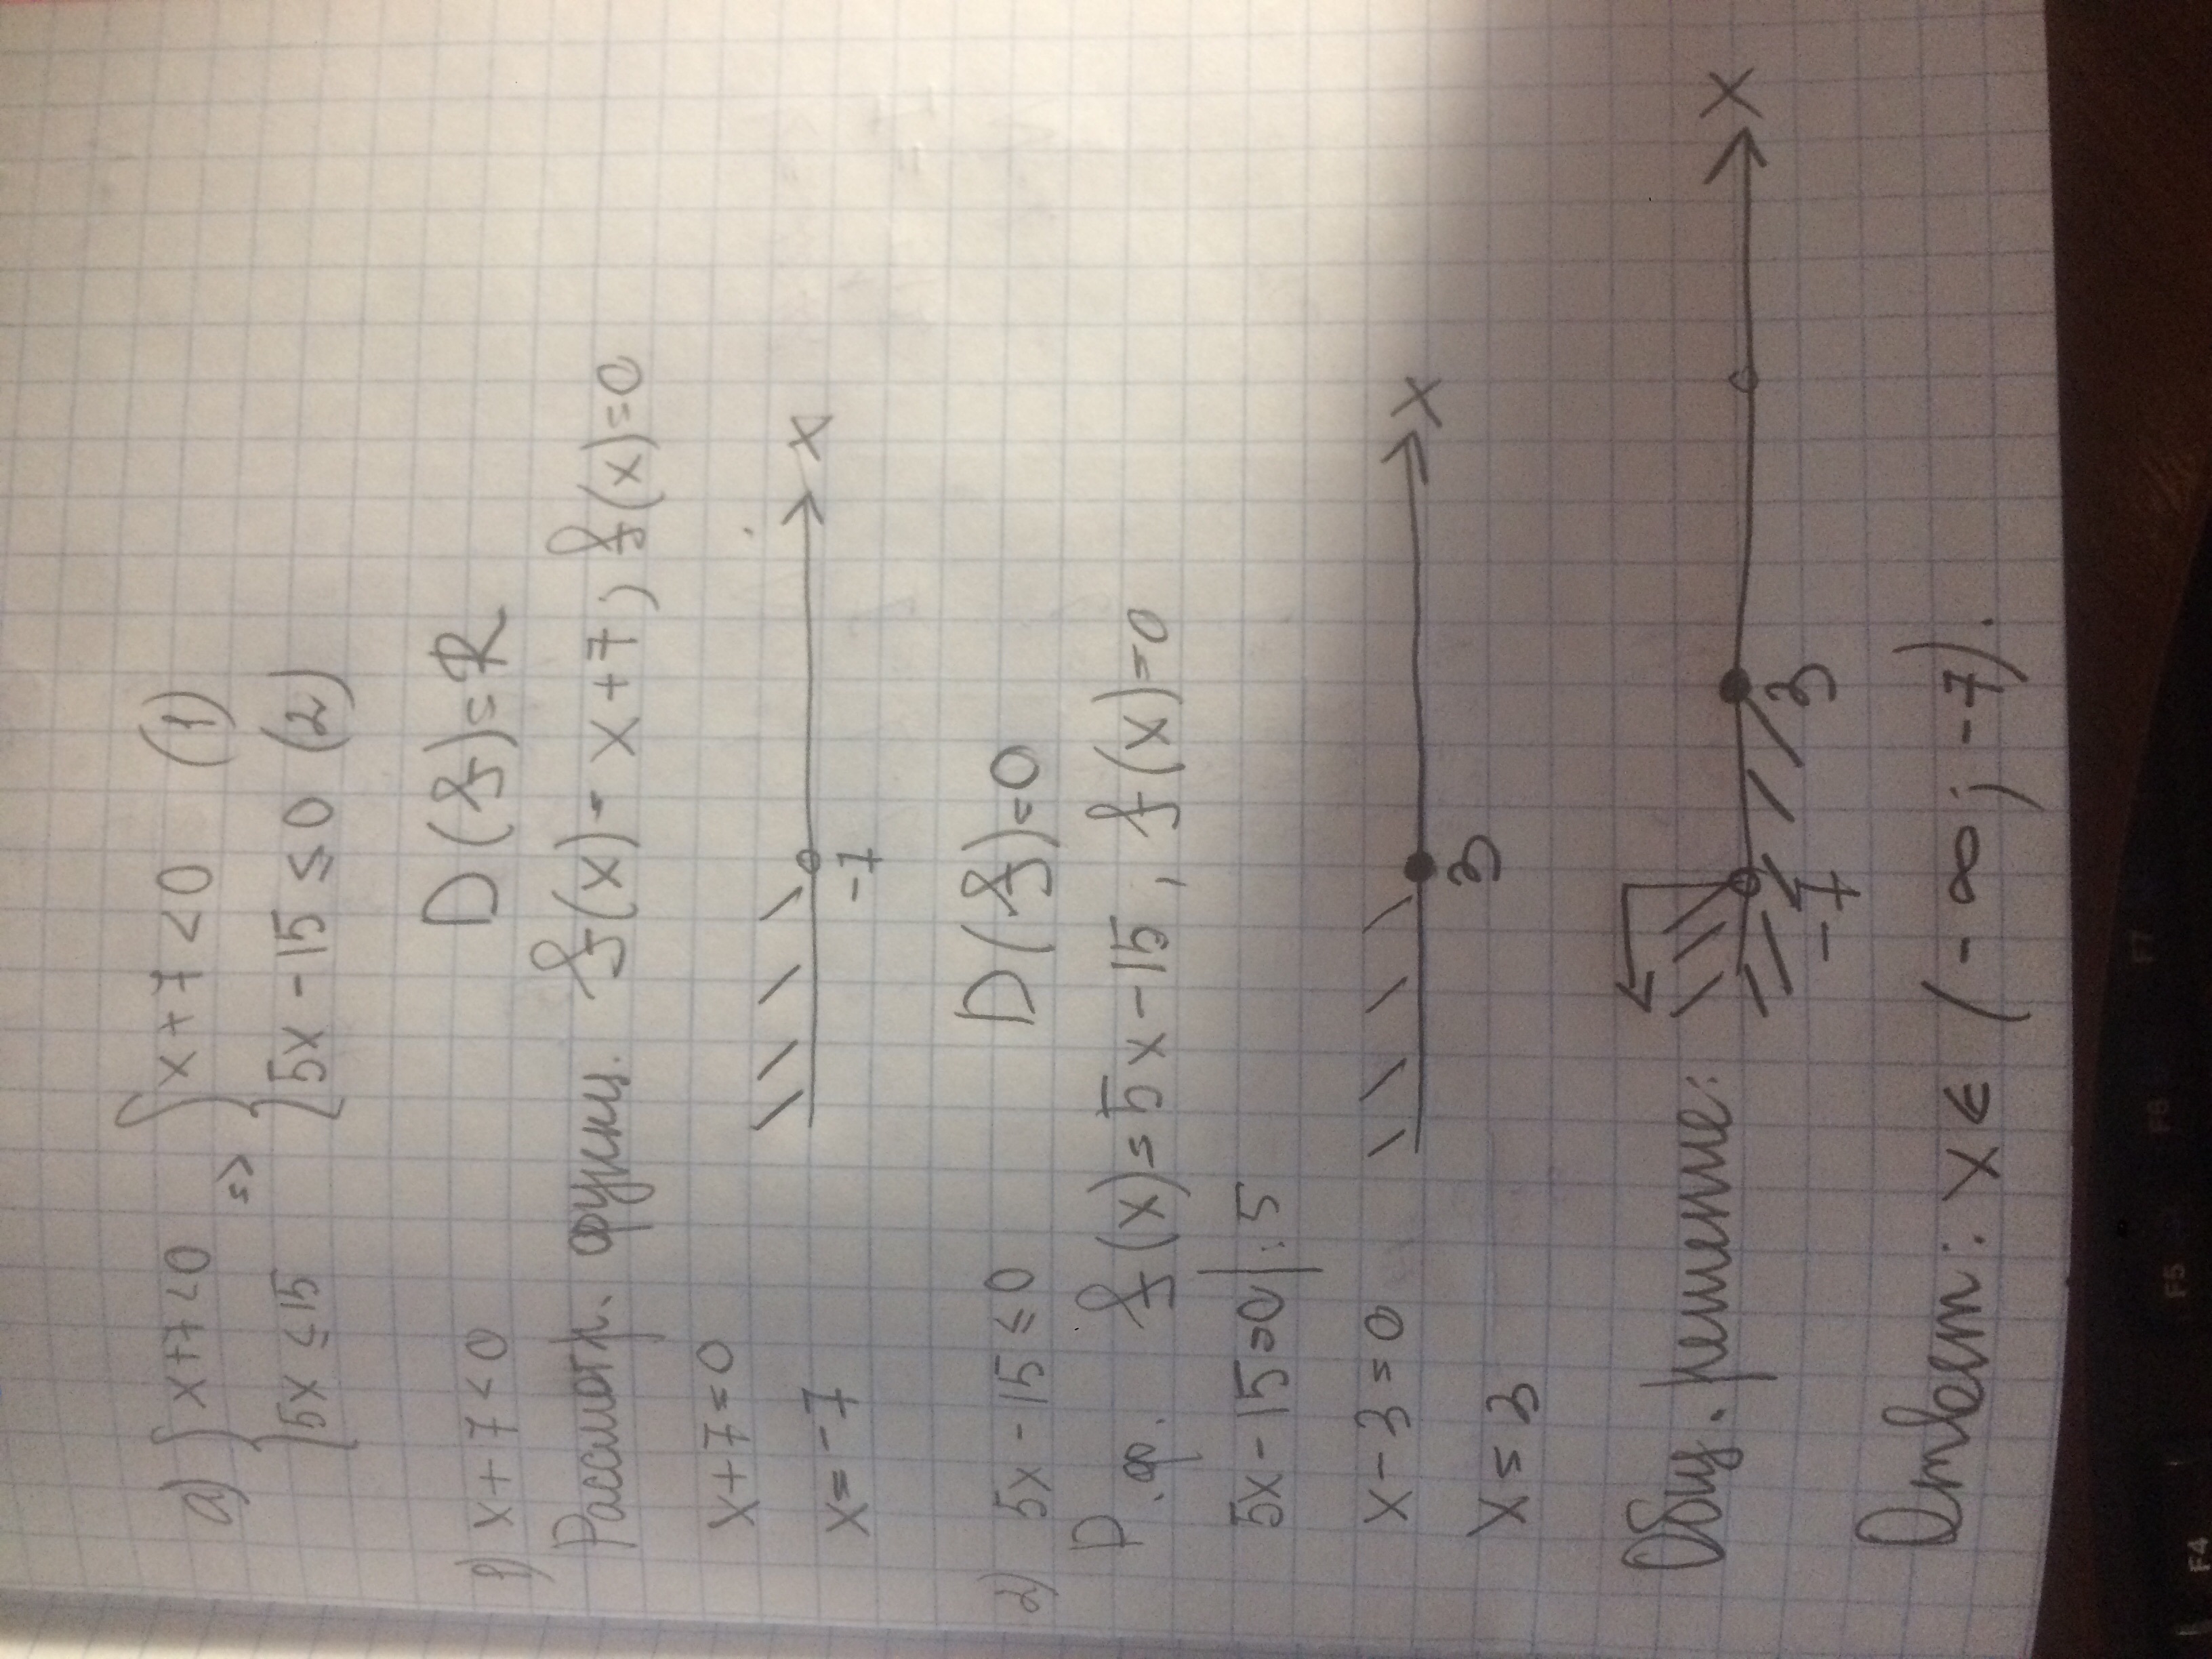 а) { x+7<0 => { x+7<0 (1)
{ 5x≤15 { 5x-15≤0 (2)
1) x+7<0 D(f)=R
Рассмотр. функц. f(x)= x+7, f(x)=0
x+7=0
x=-7
-7 x
2) 5x-15≤0 D(f)=0
Р. ф. f(x)=5x-15, f(x)=0
5x-15=0|:5
x-3=0
x=3
3 x
Общ. решение: -7 3 x
Ответ: x∈ (-∞; -7).
F4 F5 F6 F7